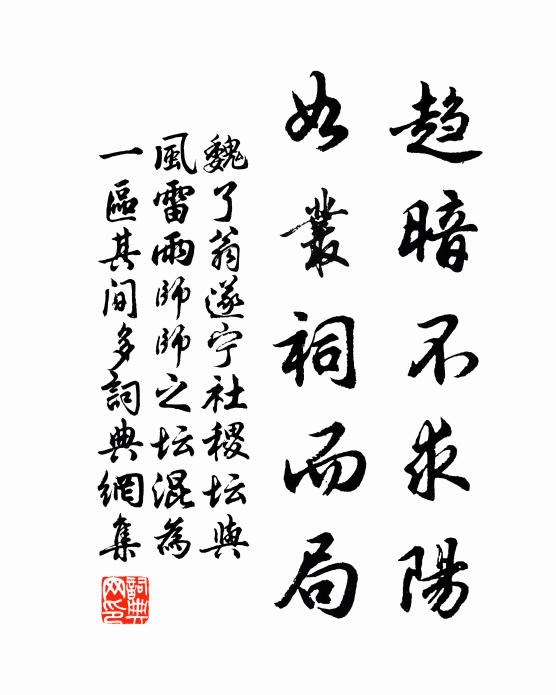 趋暗不求陽
如叢祠而局
魏了翁遂宁社稷坛與
風雷雨師師之坛混為
一區其间多詞典網集
詞典网印